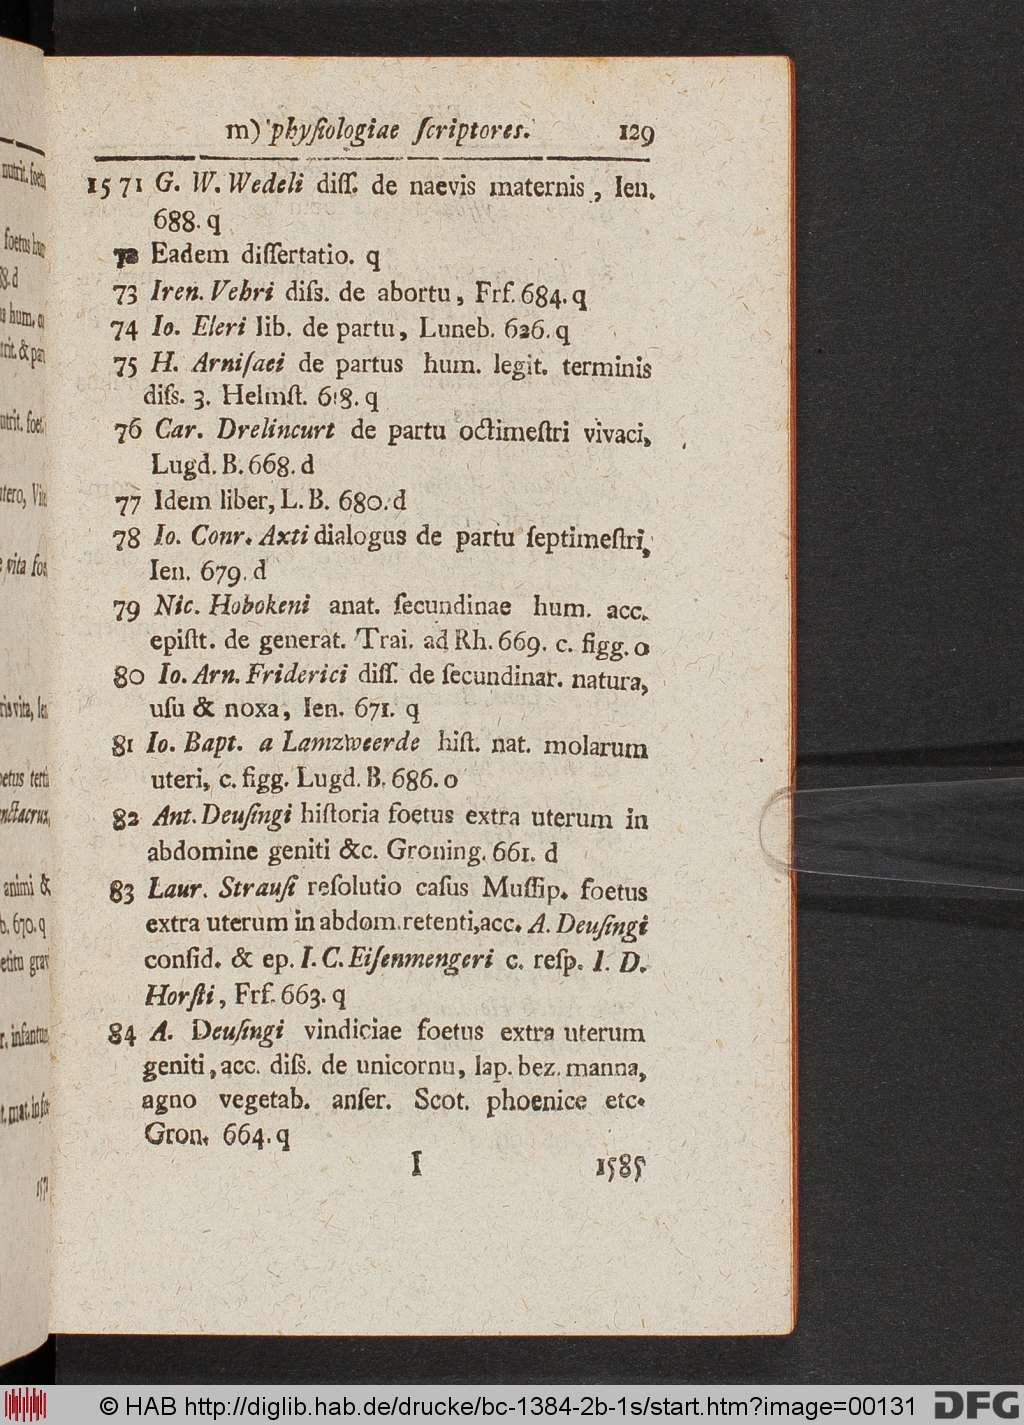 m) physiologiae scriptores. 129
1571 G. W. Wedeli diss. de naevis maternis, Ien.
688. q
72 Eadem dissertatio. q
73 Iren. Vehri diss. de abortu, Frf. 684. q
74 Io. Eleri lib. de partu, Luneb. 626. q
75 H. Arnisaei de partus hum. legit. terminis
diss. 3. Helmst. 618. q
76 Car. Drelincurt de partu octimestri vivaci,
Lugd. B. 668. d
77 Idem liber, L. B. 680. d
78 Io. Conr. Axti dialogus de partu septimestri,
Ien. 679. d
79 Nic. Hobokeni anat. secundinae hum. acc.
epistt. de generat. Trai. ad Rh. 669. c. figg. o
80 Io. Arn. Friderici diss. de secundinar. natura,
usu & noxa, Ien. 671. q
81 Io. Bapt. a Lamzweerde hist. nat. molarum
uteri, c. figg. Lugd. B. 686. o
82 Ant. Deusingi historia foetus extra uterum in
abdomine geniti &c. Groning. 661. d
83 Laur. Strausi resolutio casus Mussip. foetus
extra uterum in abdom. retenti, acc. A. Deusingi
consid. & ep. I. C. Eisenmengeri c. resp. I. D.
Horsti, Frf. 663. q
84 A. Deusingi vindiciae foetus extra uterum
geniti, acc. diss. de unicornu, lap. bez. manna,
agno vegetab. anser. Scot. phoenice etc.
Gron. 664. q
I 1585
© HAB http://diglib.hab.de/drucke/bc-1384-2b-1s/start.htm?image=00131 DFG